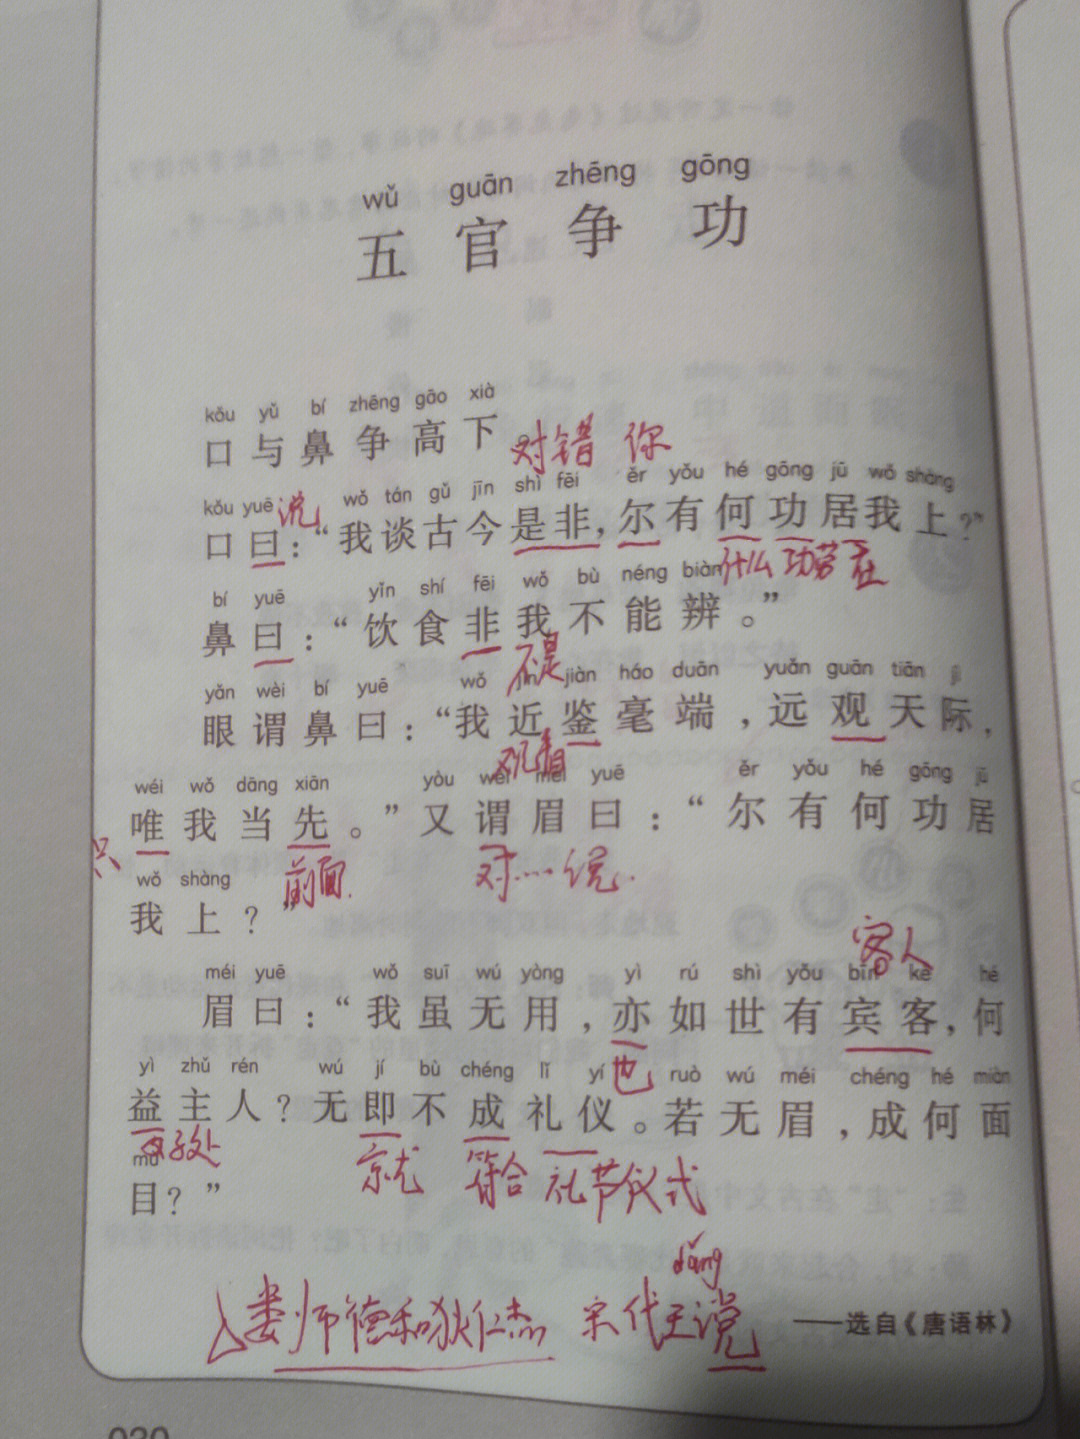 wǔ guān zhēng gōng
五官争功
kǒu yǔ bí zhēng gāo xià
口与鼻争高下
对错 你
kǒu yuē wǒ tán gǔ jīn shì fēi ěr yǒu hé gōng jū wǒ shàng
说
口曰：“我谈古今是非，尔有何功居我上？”
什么 功劳 在
bí yuē yǐn shí fēi wǒ bù néng biàn
鼻曰：“饮食非我不能辨。”
不是
yǎn wèi bí yuē wǒ jìn jiàn háo duān yuǎn guān tiān jì
眼谓鼻曰：“我近鉴毫端，远观天际，
观看
wéi wǒ dāng xiān yòu wèi méi yuē ěr yǒu hé gōng jū
唯我当先。”又谓眉曰：“尔有何功居
只 前面 对……说
wǒ shàng
我上？”
客人
méi yuē wǒ suī wú yòng yì rú shì yǒu bīn kè hé
眉曰：“我虽无用，亦如世有宾客，何
也
yì zhǔ rén wú jí bù chéng lǐ yí ruò wú méi chéng hé miàn
益主人？无即不成礼仪。若无眉，成何面
好处 就 符合 礼节仪式
mù
目？”
dǎng
娄师德和狄仁杰 宋代王谠
——选自《唐语林》